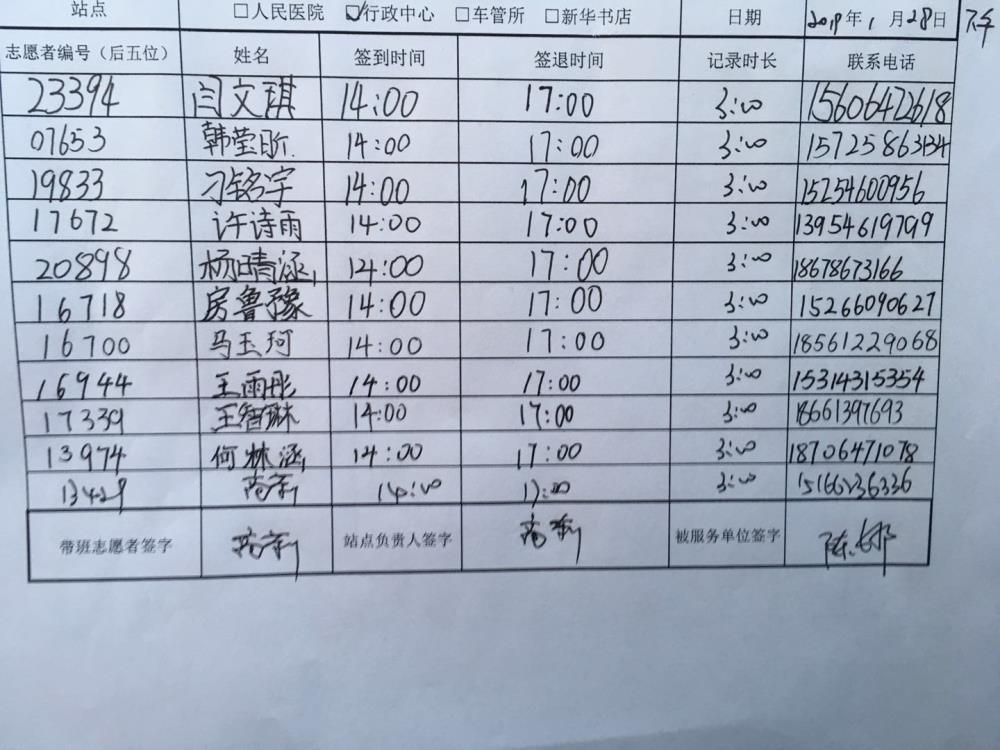 站点 □人民医院 ☑行政中心 □车管所 □新华书店 日期 2018年1月28日 下午
志愿者编号（后五位） 姓名 签到时间 签退时间 记录时长 联系电话
23394 闫文琪 14:00 17:00 3:00 15606422618
07653 韩莹昕 14:00 17:00 3:00 15725863134
19833 刁铭宇 14:00 17:00 3:00 15254600956
17672 许诗雨 14:00 17:00 3:00 13954619799
20898 杨晴涵 14:00 17:00 3:00 18678673166
16718 房鲁豫 14:00 17:00 3:00 15266090627
16700 马玉珂 14:00 17:00 3:00 18561229068
16944 王雨彤 14:00 17:00 3:00 15314315354
17339 王智琳 14:00 17:00 3:00 18661397693
13974 何林涵 14:00 17:00 3:00 18706471078
13429 14:00 17:00 3:00 15166236336
带班志愿者签字 站点负责人签字 被服务单位签字 陈娜